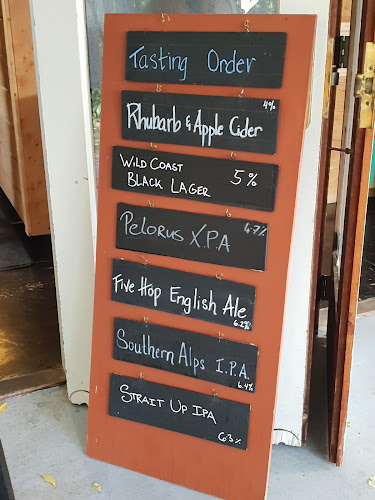 Tasting Order
4%
Rhubarb & Apple Cider
WILD COAST
BLACK LAGER 5%
4.7%
Pelorus X.P.A
Five Hop English Ale
6.2%
Southern Alps I.P.A.
6.4%
STRAIT UP IPA
6.3%